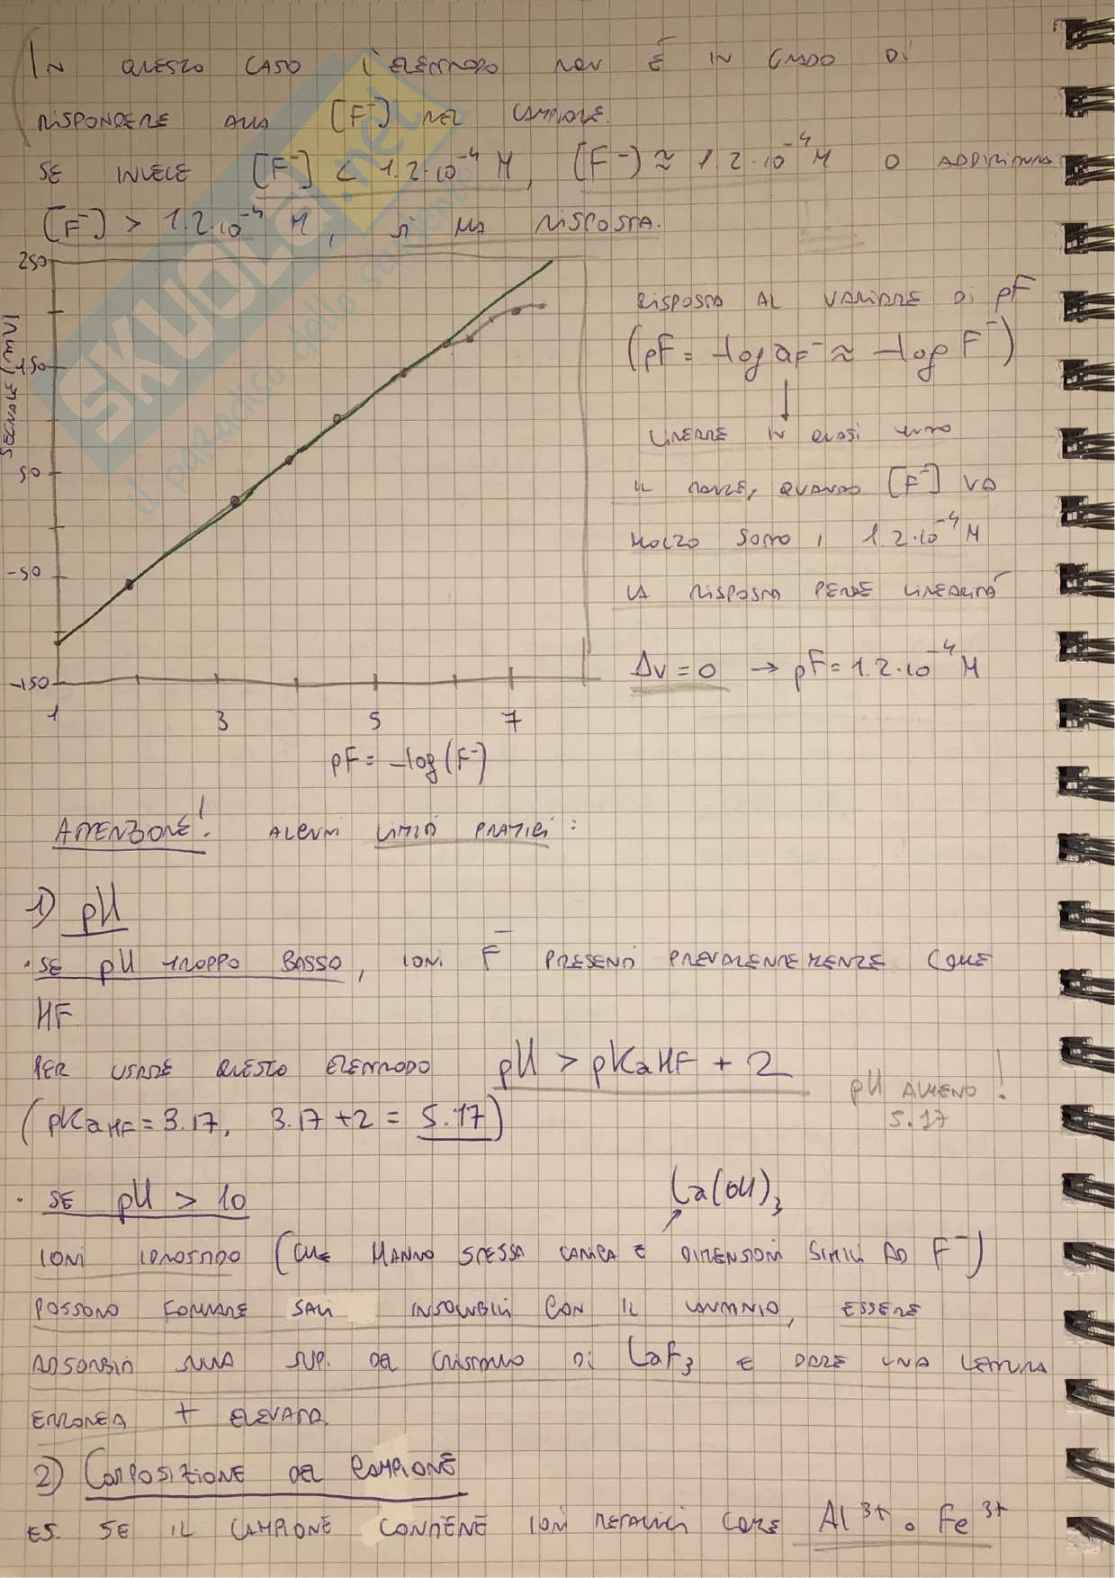 IN QUESTO CASO L'ELETTRODO NON È IN GRADO DI
RISPONDERE ALLA [F⁻] NEL CAMPIONE.
SE INVECE [F⁻] < 1.2·10⁻⁴ M, [F⁻] ≈ 1.2·10⁻⁴ M O ADDIRITTURA
[F⁻] > 1.2·10⁻⁴ M, SI HA RISPOSTA.
SKUOLA.net
il paradiso dello studente
250
150
50
-50
-150
SEGNALE (mV)
1 3 5 7
pF = -log(F⁻)
RISPOSTA AL VARIARE DI pF
(pF = -log aF⁻ ≈ -log F⁻)
LINEARE IN QUASI TUTTO
IL RANGE, QUANDO [F⁻] VA
MOLTO SOTTO I 1.2·10⁻⁴ M
LA RISPOSTA PERDE LINEARITÀ
ΔV = 0 → pF = 1.2·10⁻⁴ M
ATTENZIONE! ALCUNI LIMITI PRATICI:
1) pH
· SE pH TROPPO BASSO, IONI F⁻ PRESENTI PREVALENTEMENTE COME
HF
PER USARE QUESTO ELETTRODO pH > pKaHF + 2
pH ALMENO 5.17!
(pKaHF = 3.17, 3.17 + 2 = 5.17)
· SE pH > 10
La(OH)₃
IONI IDROSSIDO (CHE HANNO STESSA CARICA E DIMENSIONI SIMILI AD F⁻)
POSSONO FORMARE SALI INSOLUBILI CON IL LANTANIO, ESSERE
ADSORBITI SULLA SUP. DEL CRISTALLO DI LaF₃ E DARE UNA LETTURA
ERRONEA + ELEVATA.
2) COMPOSIZIONE DEL CAMPIONE
ES. SE IL CAMPIONE CONTIENE IONI METALLICI COME Al³⁺ o Fe³⁺